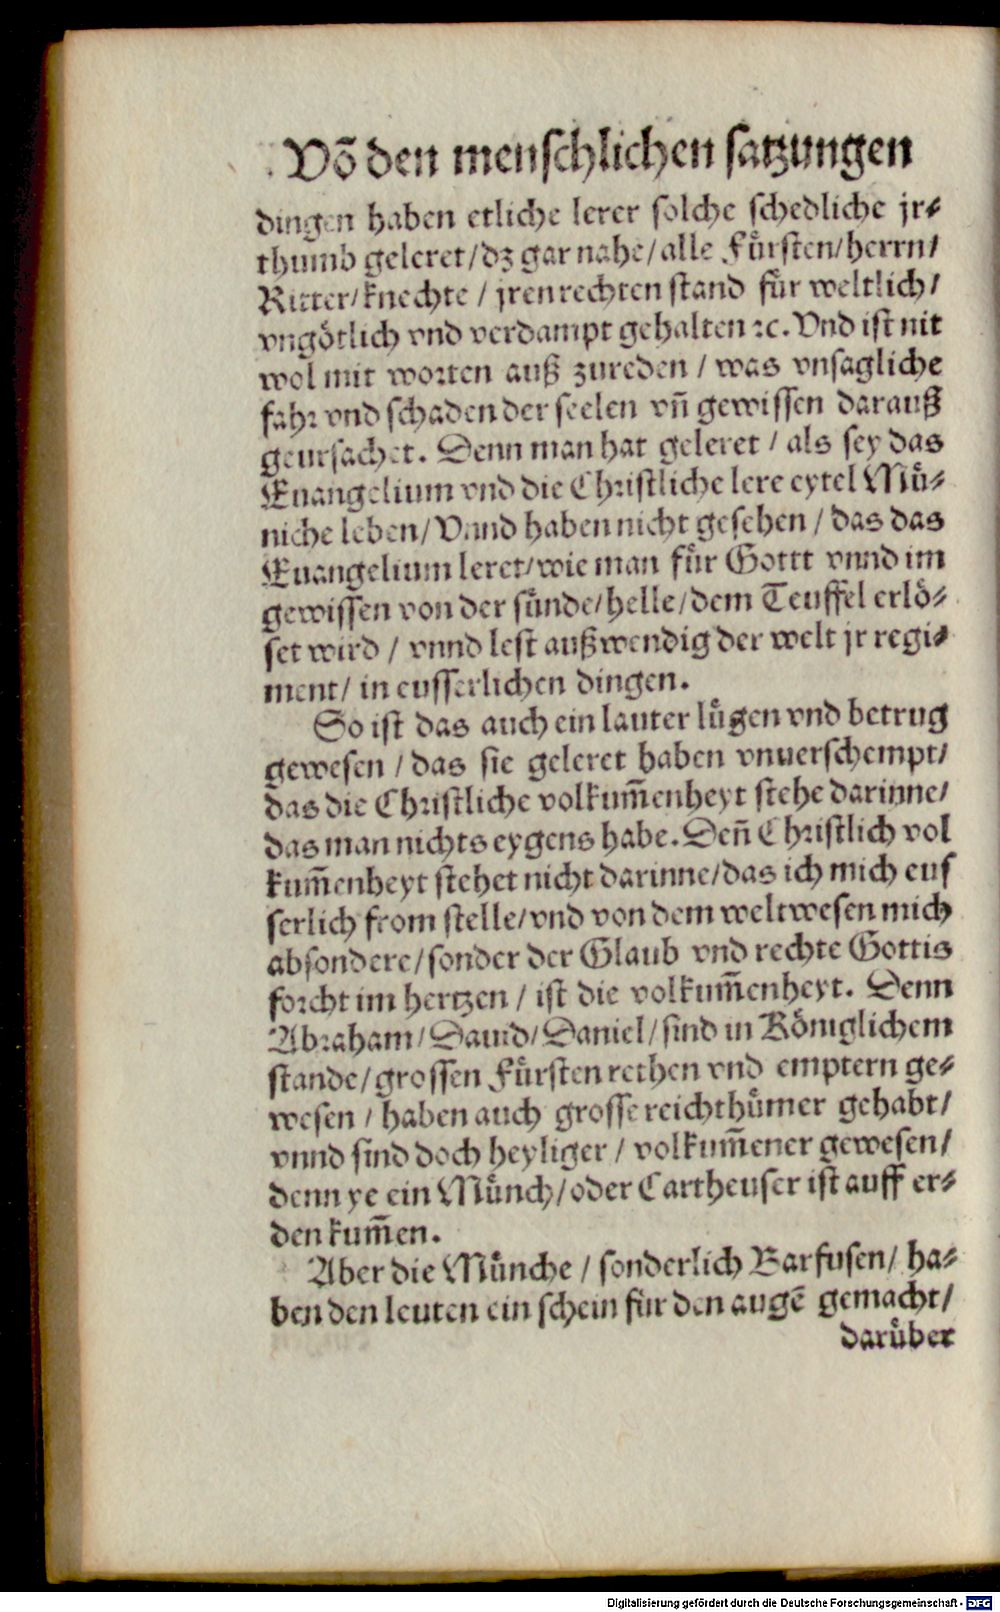 Võ den menschlichen satzungen
dingen haben etliche lerer solche schedliche jr⸗
thumb geleret/dz gar nahe/alle Fürsten/herrn/
Ritter/knechte/jren rechten stand für weltlich/
vngötlich vnd verdampt gehalten ꝛc. Vnd ist nit
wol mit worten auß zureden/was vnsagliche
fahr vnd schaden der seelen vñ gewissen darauß
geursachet. Denn man hat geleret/als sey das
Euangelium vnd die Christliche lere eytel Mü⸗
niche leben/Vnnd haben nicht gesehen/das das
Euangelium leret/wie man für Gottt vnnd im
gewissen von der sünde/helle/dem Teuffel erlö⸗
set wird/vnnd lest außwendig der welt jr regi⸗
ment/in eusserlichen dingen.
So ist das auch ein lauter lügen vnd betrug
gewesen/das sie geleret haben vnuerschempt/
das die Christliche volkum̃enheyt stehe darinne/
das man nichts eygens habe. Deñ Christlich vol
kum̃enheyt stehet nicht darinne/das ich mich eus
serlich from stelle/vnd von dem weltwesen mich
absondere/sonder der Glaub vnd rechte Gottis
forcht im hertzen/ist die volkum̃enheyt. Denn
Abraham/Dauid/Daniel/sind in Königlichem
stande/grossen Fürsten rethen vnd emptern ge⸗
wesen/haben auch grosse reichthümer gehabt/
vnnd sind doch heyliger/volkum̃ener gewesen/
denn ye ein Münch/oder Cartheuser ist auff er⸗
den kum̃en.
Aber die Münche/sonderlich Barfusen/ha⸗
ben den leuten ein schein für den augẽ gemacht/
darüber
Digitalisierung gefördert durch die Deutsche Forschungsgemeinschaft - DFG